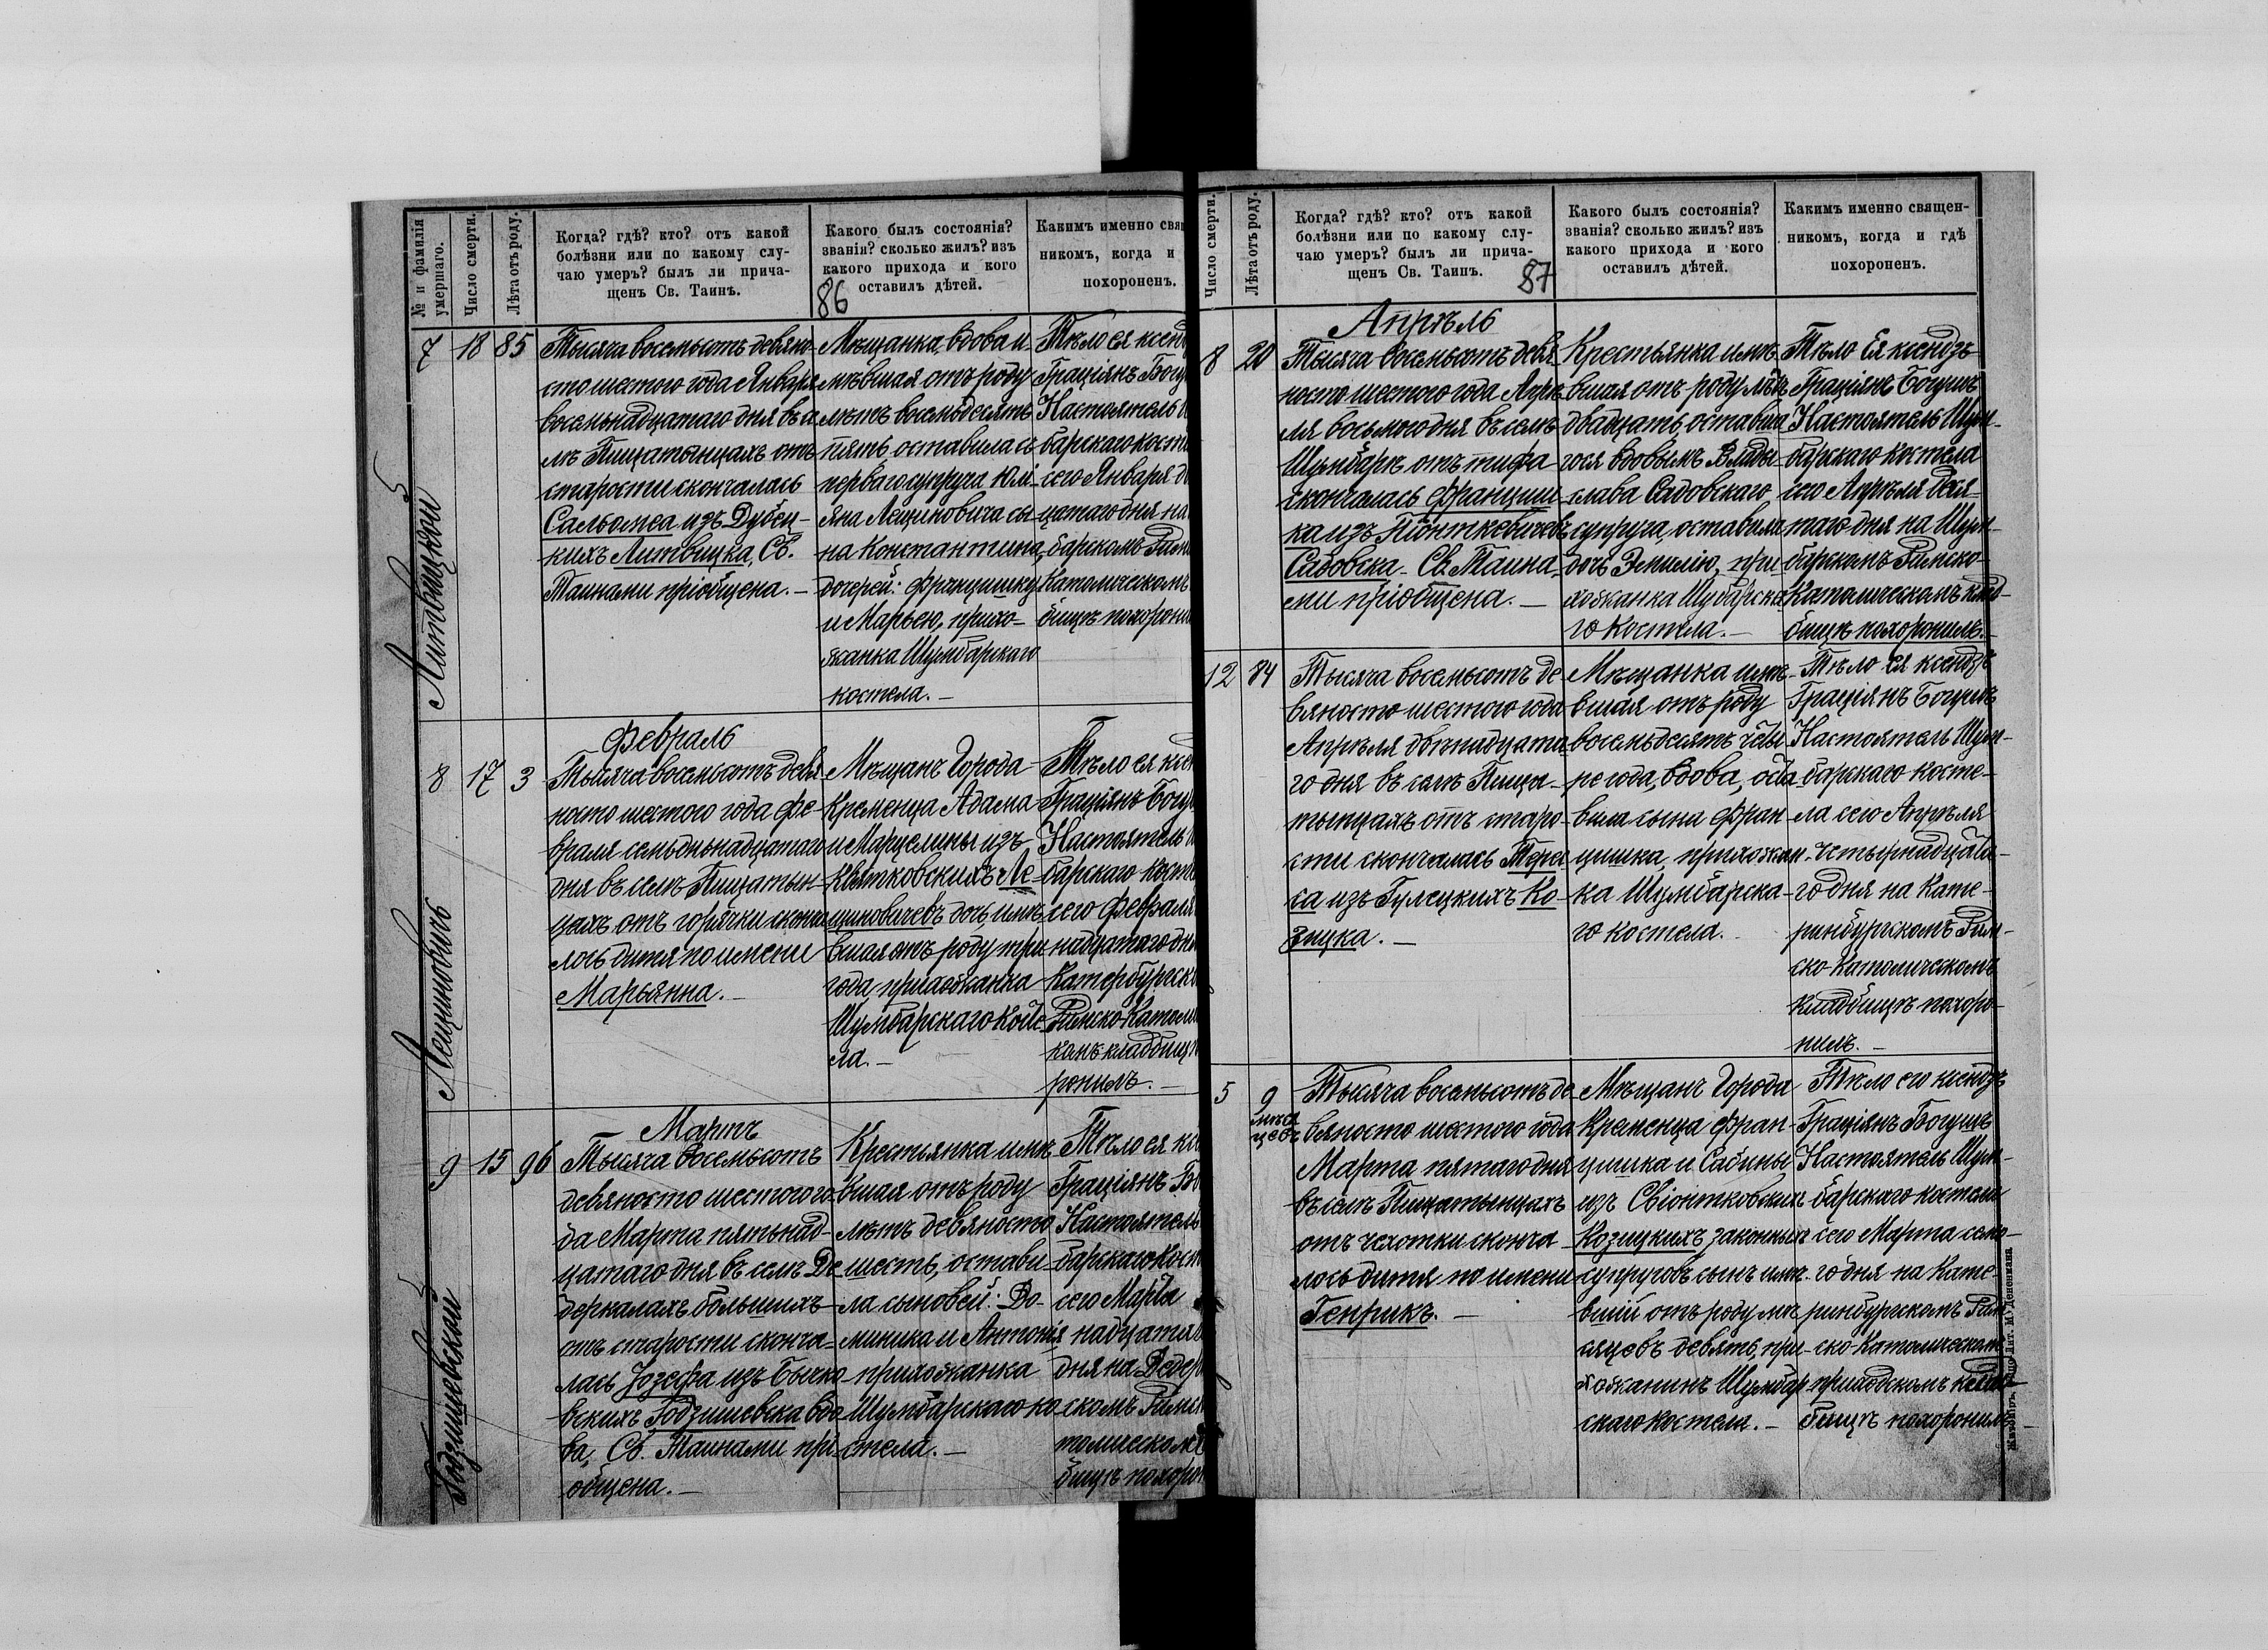 № и фамилія
умершаго.
Число смерти.
Лѣта отъ роду.
Когда? гдѣ? кто? отъ какой
болѣзни или по какому слу-
чаю умеръ? былъ ли прича-
щенъ Св. Таинъ.
Какого былъ состоянія?
званія? сколько жилъ? изъ
какого прихода и кого
оставилъ дѣтей.
86
Каким именно свя
никомъ, когда и
похороненъ.
7
Литвицкой
18
85
Тысяча восемьсотъ девяно-
сто шестого года Января
восемьнадцатаго дня въ се
лѣ Пищатынцахъ отъ
старости скончалась
Сальомеа изъ Дубец-
кихъ Литвицка, Св.
Таинами пріобщена. —
Мѣщанка, вдова и-
мѣвшая отъ роду
лѣтъ восемьдесять
пять, оставила съ
перваго супруга Юлі-
яна Лещиновича сы-
на Константина,
дочерей: Францишку
и Марью, прихо-
жанка Шумбарскаго
костела. —
Тѣло ея ксенд
Граціянъ Богу
Настоятель
барскаго косте
сего Января д
цатаго дня на
барскомъ Рим
Католическомъ
бищѣ похорони
Февраль
8
Лещиновичь
17
3
Тысяча восемьсотъ девя
носто шестого года Фе-
враля семьднадцатаго
дня въ селѣ Пищатын-
цахъ отъ горячки сконча
лось дитя по имени
Марьянна. —
Мѣщанъ Города
Кременца Адама
и Марцелины изъ
Квятковскихъ Ле-
щиновичевъ дочь, имѣ
вшая отъ роду три
года, прихожанка
Шумбарскаго косте
ла. —
Тѣло ея ксе
Граціянъ Богу
Настоятель
барскаго косте
сего Февраля
надцатаго дн
Катербургско
Римско-Католи
комъ кладбищѣ
ронилъ. —
Мартъ
9
Годзишевской
15
96
Тысяча восемьсотъ
девяносто шестого го
да Марта пятьнад-
цатаго дня въ селѣ Де
деркалахъ большихъ
отъ старости сконча-
лась Іозефа изъ Бычко
вскихъ Годзишевска вдо
ва, Св. Таинами прі
общена. —
Крестьянка имѣ
вшая отъ роду
лѣтъ девяносто
шесть, остави-
ла сыновей: До-
миника и Антонія
прихожанка
Шумбарскаго ко
стела. —
Тѣло ея кс
Граціянъ Бо
Настоятель
барскаго кост
сего Марта
надцатаго
дня на Дедер
скомъ Римск
толическомъ
бищѣ похорон
Число смерти.
Лѣта отъ роду.
Когда? гдѣ? кто? отъ какой
болѣзни или по какому слу-
чаю умеръ? былъ ли прича-
щенъ Св. Таинъ.
87
Какого былъ состоянія?
званія? сколько жилъ? изъ
какого прихода и кого
оставилъ дѣтей.
Каким именно священ-
никомъ, когда и гдѣ
похороненъ.
Апрѣль
8
20
Тысяча восемьсотъ девя
носто шестого года Апрѣ
ля восьмого дня въ селѣ
Шумбарѣ отъ тифа
скончалась Франциш
ка изъ Піонткевичевъ
Садовска. Св. Таина-
ми пріобщена. —
Крестьянка имѣ-
вшая отъ роду лѣтъ
двадцать, оставша
гося вдовымъ Влады-
слава Садовскаго
супруга, оставила
дочь Эмилію, при-
хожанка Шумбарска
го костела. —
Тѣло Ея ксендзъ
Граціянъ Богушъ
Настоятель Шум-
барскаго костела
сего Апрѣля деся-
таго дня на Шум-
барскомъ Римско-
Католическомъ клад-
бищѣ похоронилъ. —
12
84
Тысяча восемьсотъ де
вяносто шестого года
Апрѣля двѣнадцата
го дня въ селѣ Пища-
тынцахъ отъ старо-
сти скончалась Тере
са изъ Гулецкихъ Ко-
зицка. —
Мѣщанка имѣ-
вшая отъ роду
восемьдесятъ четы
ре года, вдова, оста
вила сына Фран-
цишка, прихожан-
ка Шумбарска-
го костела.
Тѣло ея ксендзъ
Граціянъ Богушъ
Настоятель Шум-
барскаго косте-
ла сего Апрѣля
четырнадцата-
го дня на Кате-
ринбургскомъ Рим-
ско-Католическомъ
кладбищѣ похоро-
нилъ. —
5
9
мѣся
цевъ
Тысяча восемьсотъ де
вяносто шестого года
Марта пятаго дня
въ селѣ Пищатынцахъ
отъ чахотки сконча
лось дитя по имени
Генрикъ. —
Мѣщанъ Города
Кременца Фран
цишка и Сабины
изъ Свіонтковскихъ
Козицкихъ законныхъ
супруговъ сынъ имѣ-
вшій отъ роду мѣ
сяцевъ девять, при-
хожанинъ Шумбар
скаго костела. —
Тѣло его ксендзъ
Граціянъ Богушъ
Настоятель Шум-
барскаго костела
сего Марта седмо-
го дня на Кате-
ринбургскомъ Рим
ско-Католическомъ
приходскомъ клад-
бищѣ похоронилъ —